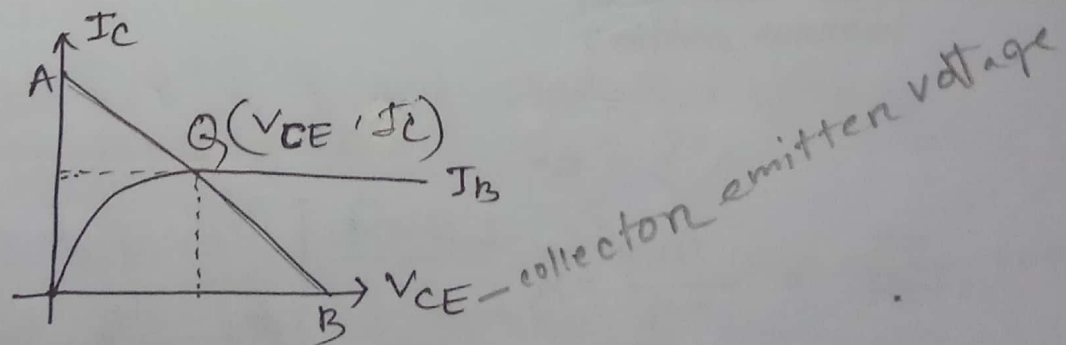 IC
A
Q(VCE, IC)
IB
VCE - collecton emitten voltage
B